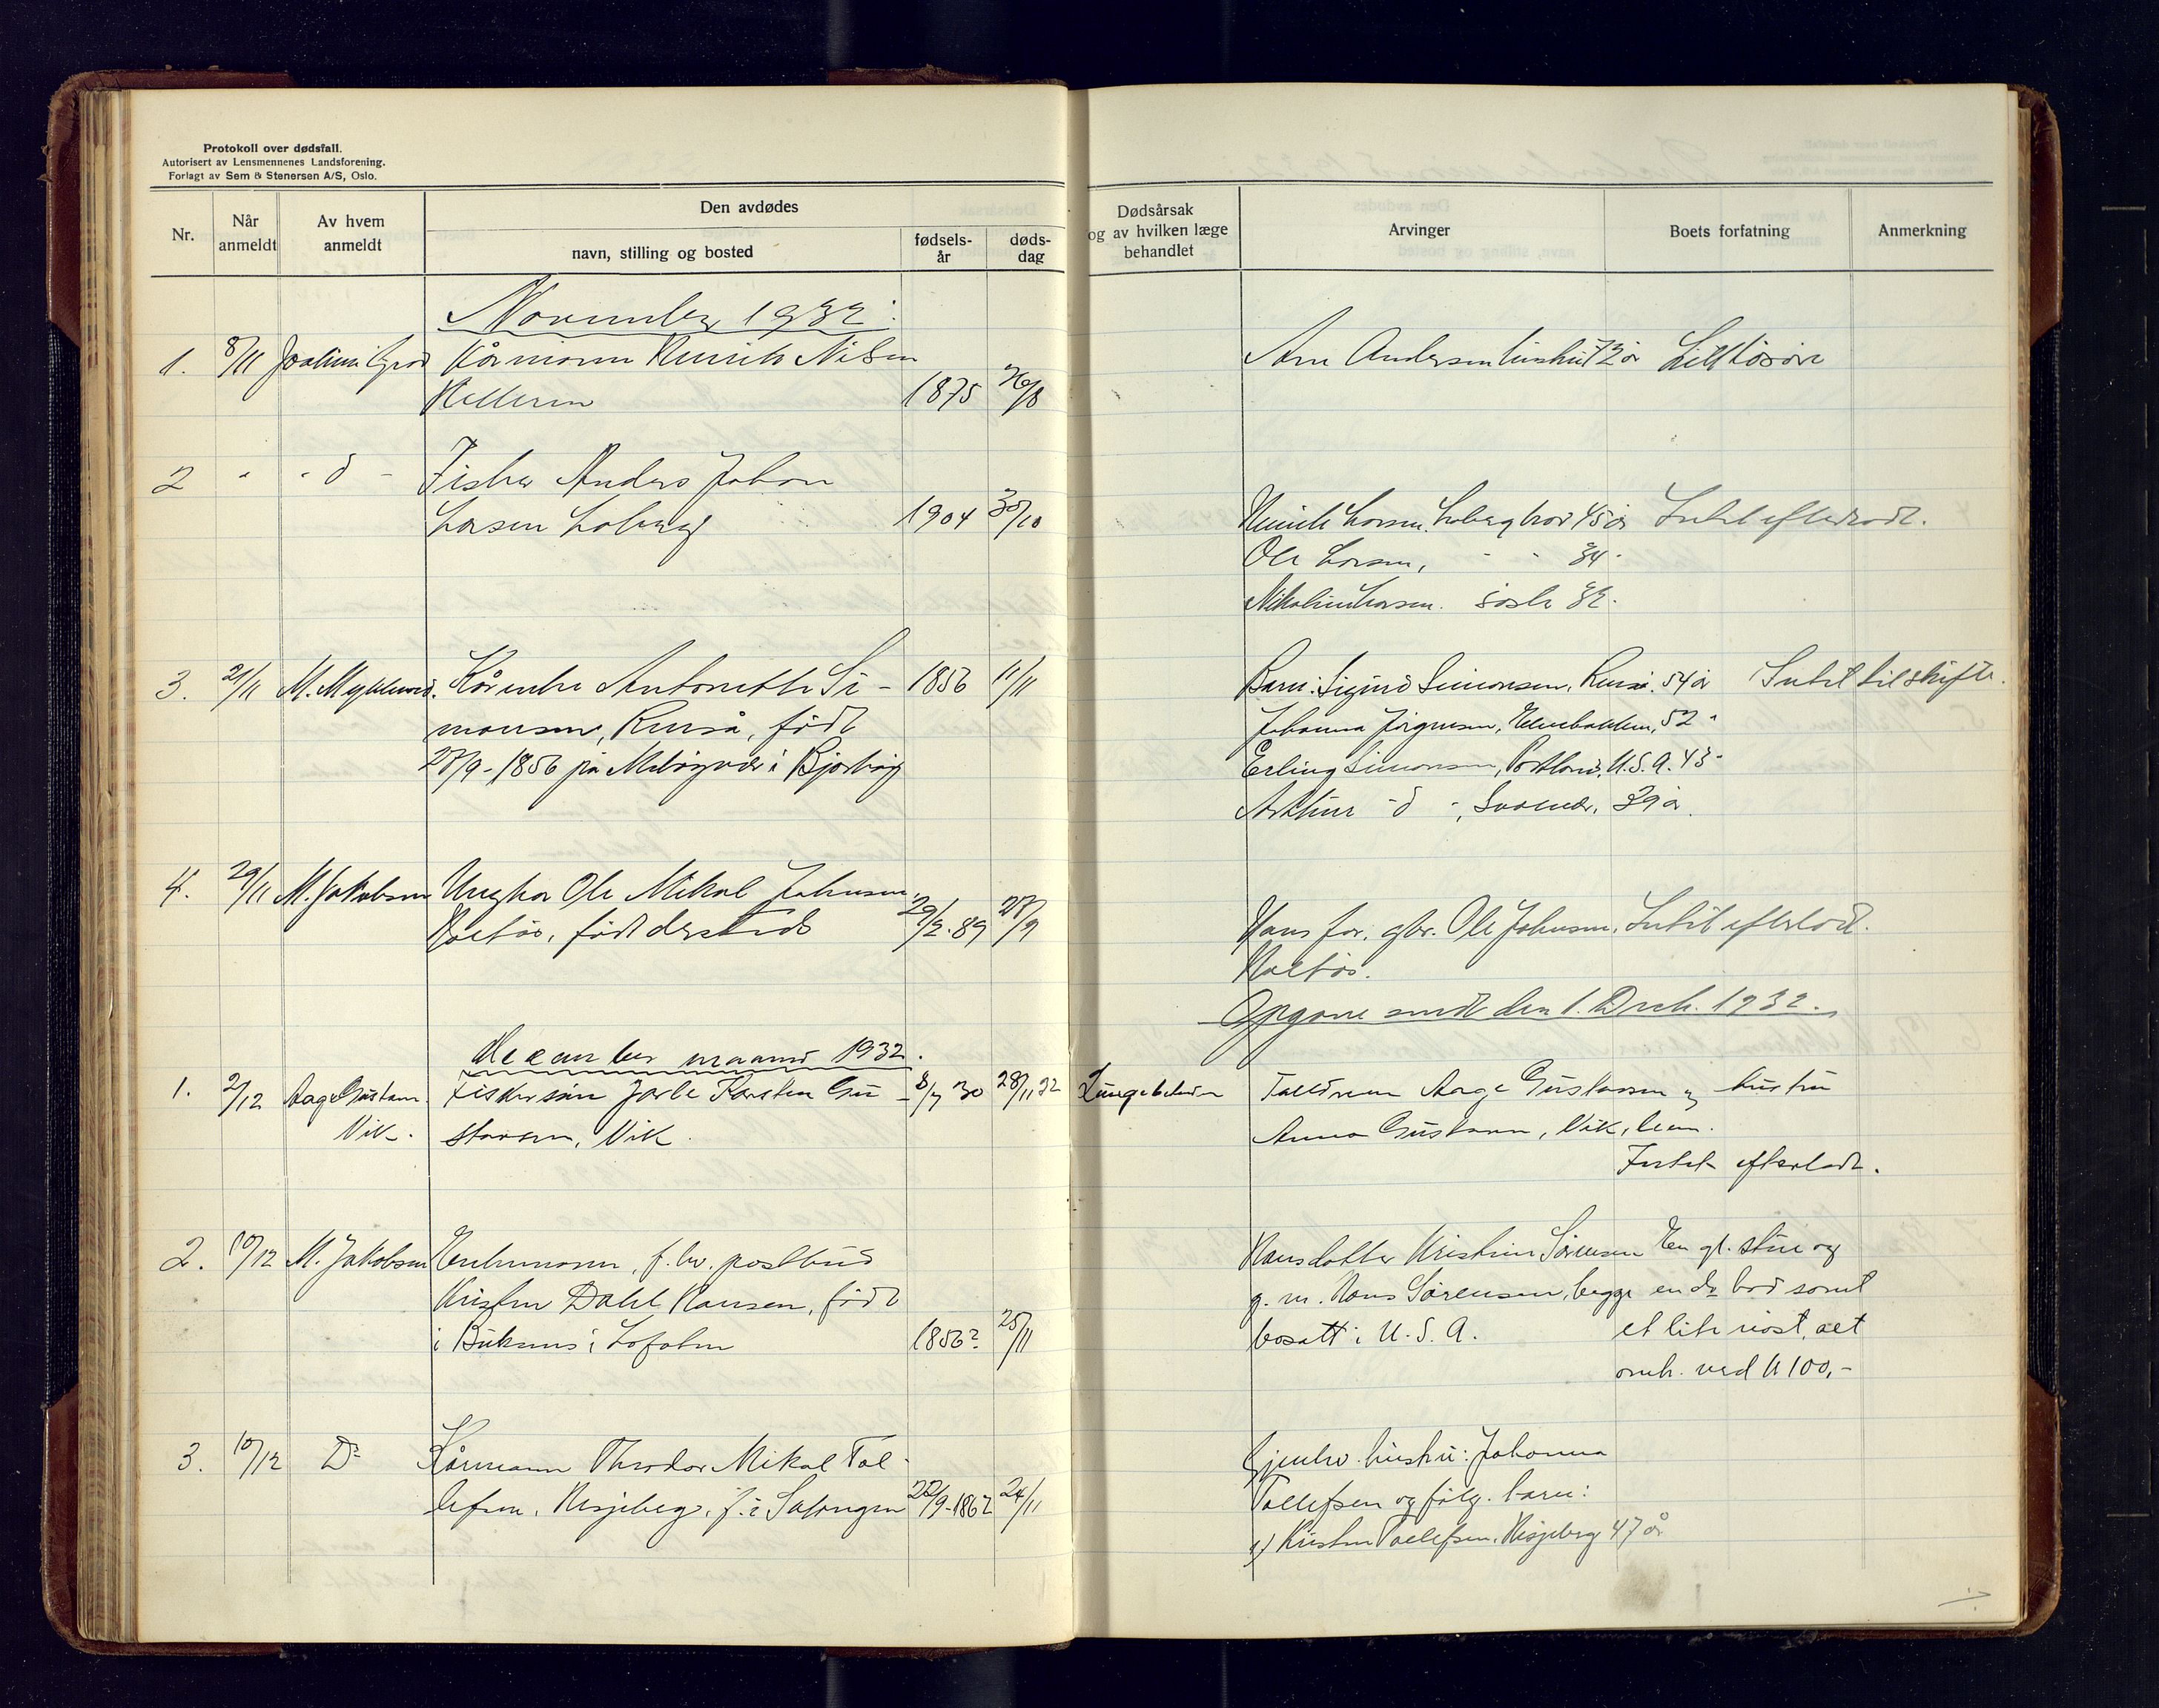 Protokoll over dødsfall.
Autorisert av Lensmennenes Landsforening.
Forlagt av Sem & Stenersen A/S, Oslo.
Nr.
Når anmeldt
Av hvem anmeldt
Den avdødes
navn, stilling og bosted
fødsels-år
døds-dag
Dødsårsak og av hvilken læge behandlet
Arvinger
Boets forfatning
Anmerkning
November 1932:
1. 8/11 Kårmann Henrik Nilsen
1875 26/8
Andersen 72 år Litt løsøre
2 " - d - Fisker Anders Johan
Larsen Loberg 1904 30/10
Henrik Larsen Loberg bror 45 år Intet efterladt.
Ole Larsen, - - 34 -
Larsen. søster 32.
3. 21/11 Kårenke Antonette Si- 1856 11/11
monsen, Renså, född
27/9-1856 på i
Barn: Sigurd Simonsen, Renså. 54 år Intet til skifte.
Johanna Jørgensen, 52 "
Erling Simonsen, Portland, U.S.A. 43 -
Arthur - d -, Svolvær, 39 år.
4. 29/11 M. Jakobsen Ungkar Ole Mikal Johnsen,
født dersteds 29/2-89 27/9
Hans far, gbr. Ole Johnsen, Intet efterladt.
Opgave sendt den 1. Desb. 1932.
December maaned 1932.
1. 2/12 Aage Gustavs. Fiskersøn Jarle Karsten Gu- 8/7 30 28/11 32 Lungebetend
Vik. stavsen, Vik.
Forældrene Aage Gustavsen og hustru
Anna Gustavsen, Vik,
Intet efterladt.
2. 10/12 M. Jakobsen Enkemann, f.hv. postbud
Kristen Dahl Hansen, född
i Buksnes i Lofoten 1856? 25/11
Hans datter Kristine Sørensen En gl. stue og
g. m. Hans Sørensen, begge en do bod samt
bosatt i U.S.A. et lite nøst, alt
omk. verd kr 100,-
3. 10/12 Do Kårmann Theodor Mikal Tol-
lefsen, f. i Salangen 22/9-1862 24/11
Gjenlev. hustru: Johanna
Tollefsen og følg. barn:
1) Kristen Tollefsen, 47 år